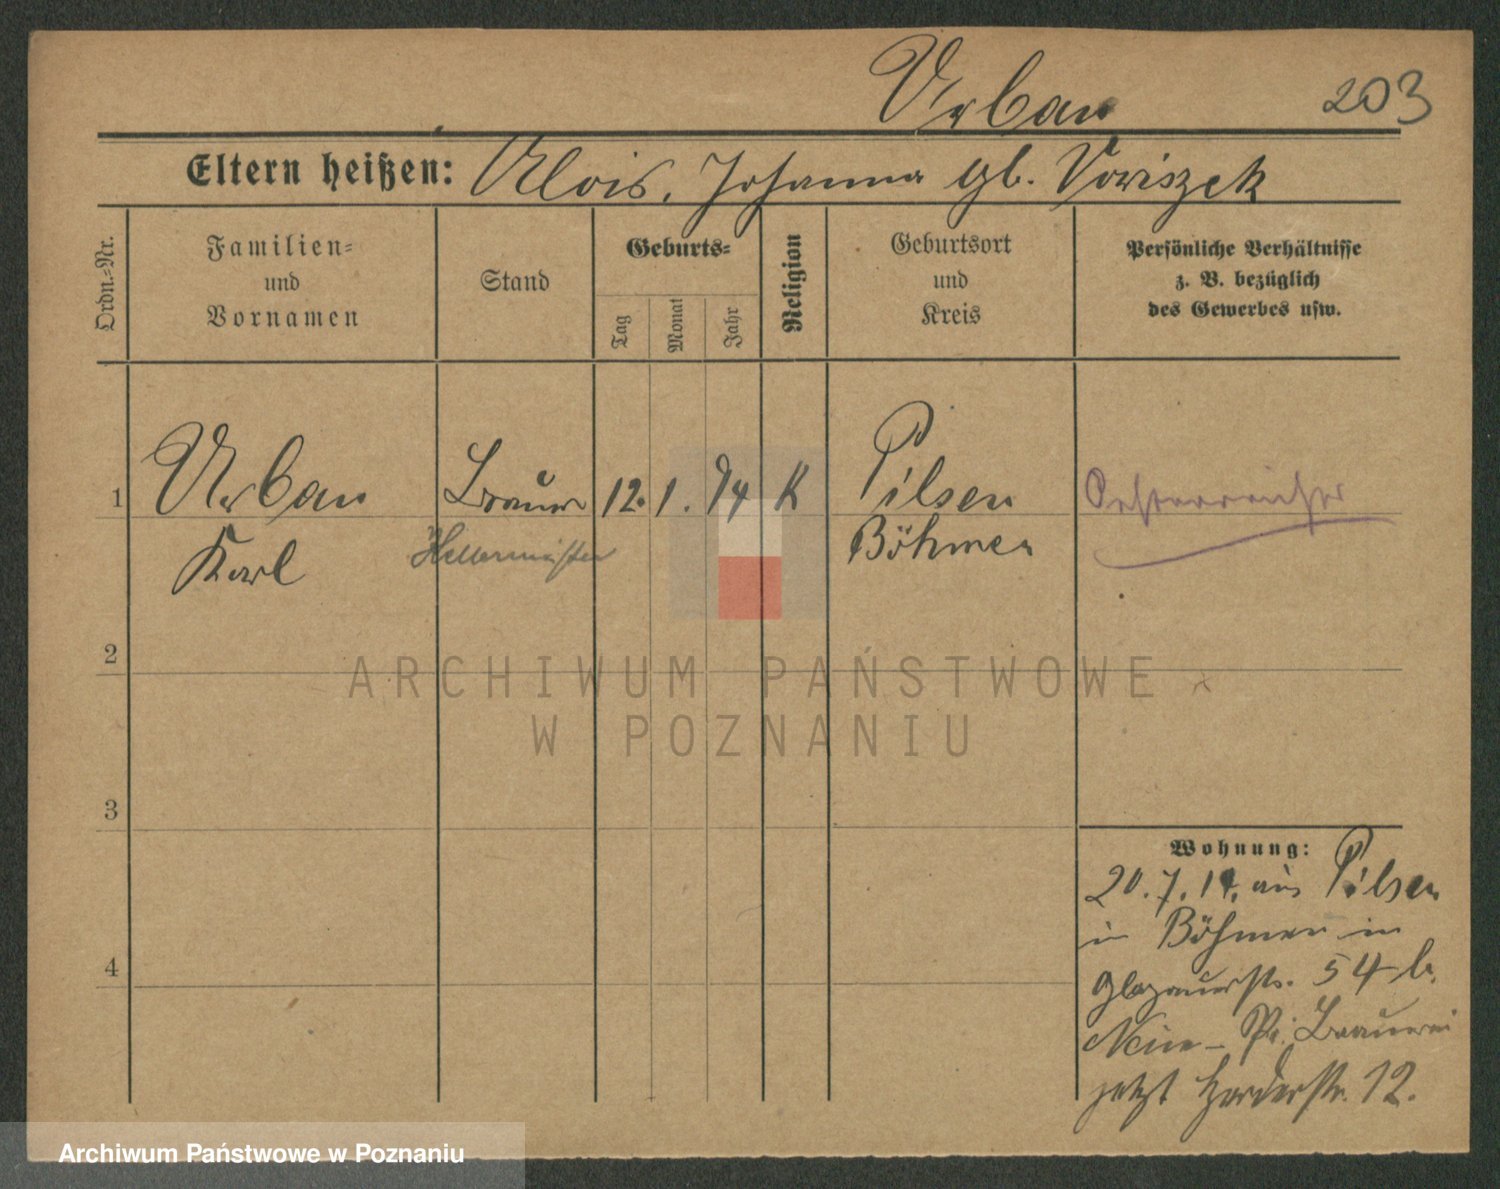 Urban
203
Eltern heißen: Alois, Johanna gb. Voriszek
Ordn.=Nr.
Familien= und Vornamen
Stand
Geburts=
Tag
Monat
Jahr
Religion
Geburtsort und Kreis
Persönliche Verhältnisse
z. B. bezüglich
des Gewerbes usw.
1 Urban Brauer 12. 1. 94 K Pilsen Oesterreicher
Karl Böhmen
2
ARCHIWUM PAŃSTWOWE
W POZNANIU
3
Wohnung:
20. 7. 19. aus Pilsen
in Böhmen in
Glogauerstr. 54 b.
Brauerei
jetzt Herderstr. 12.
4
Archiwum Państwowe w Poznaniu